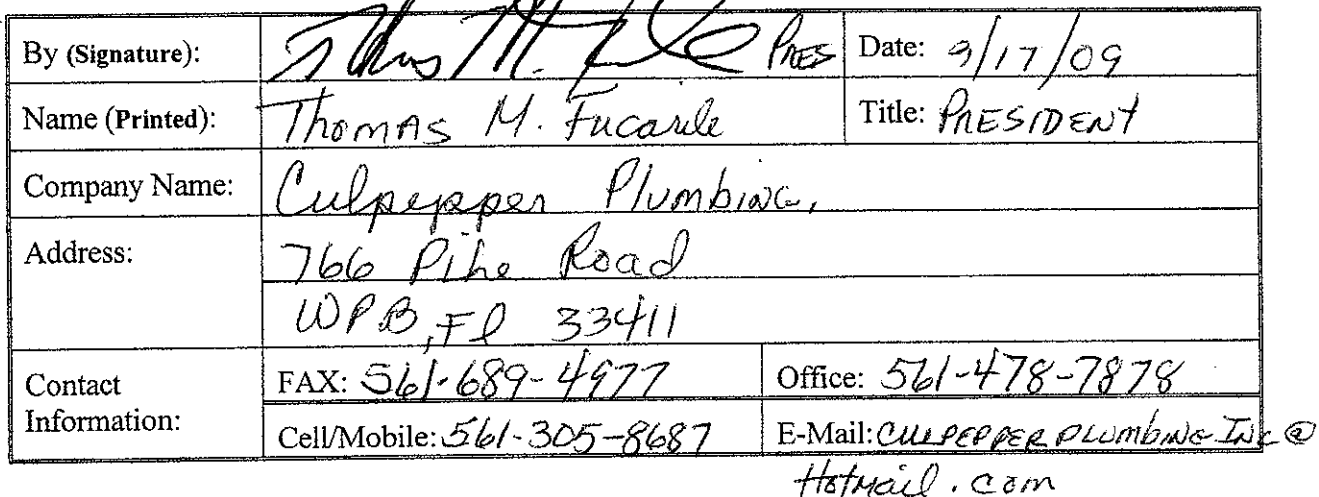 By (Signature): Thomas M. Fucarile PRES Date: 9/17/09
Name (Printed): Thomas M. Fucarile Title: PRESIDENT
Company Name: Culpepper Plumbing,
Address: 766 Pike Road
WPB, Fl 33411
Contact Information: FAX: 561-689-4977 Office: 561-478-7878
Cell/Mobile: 561-305-8687 E-Mail: CULPEPPER PLUMBING INC @
Hotmail.com